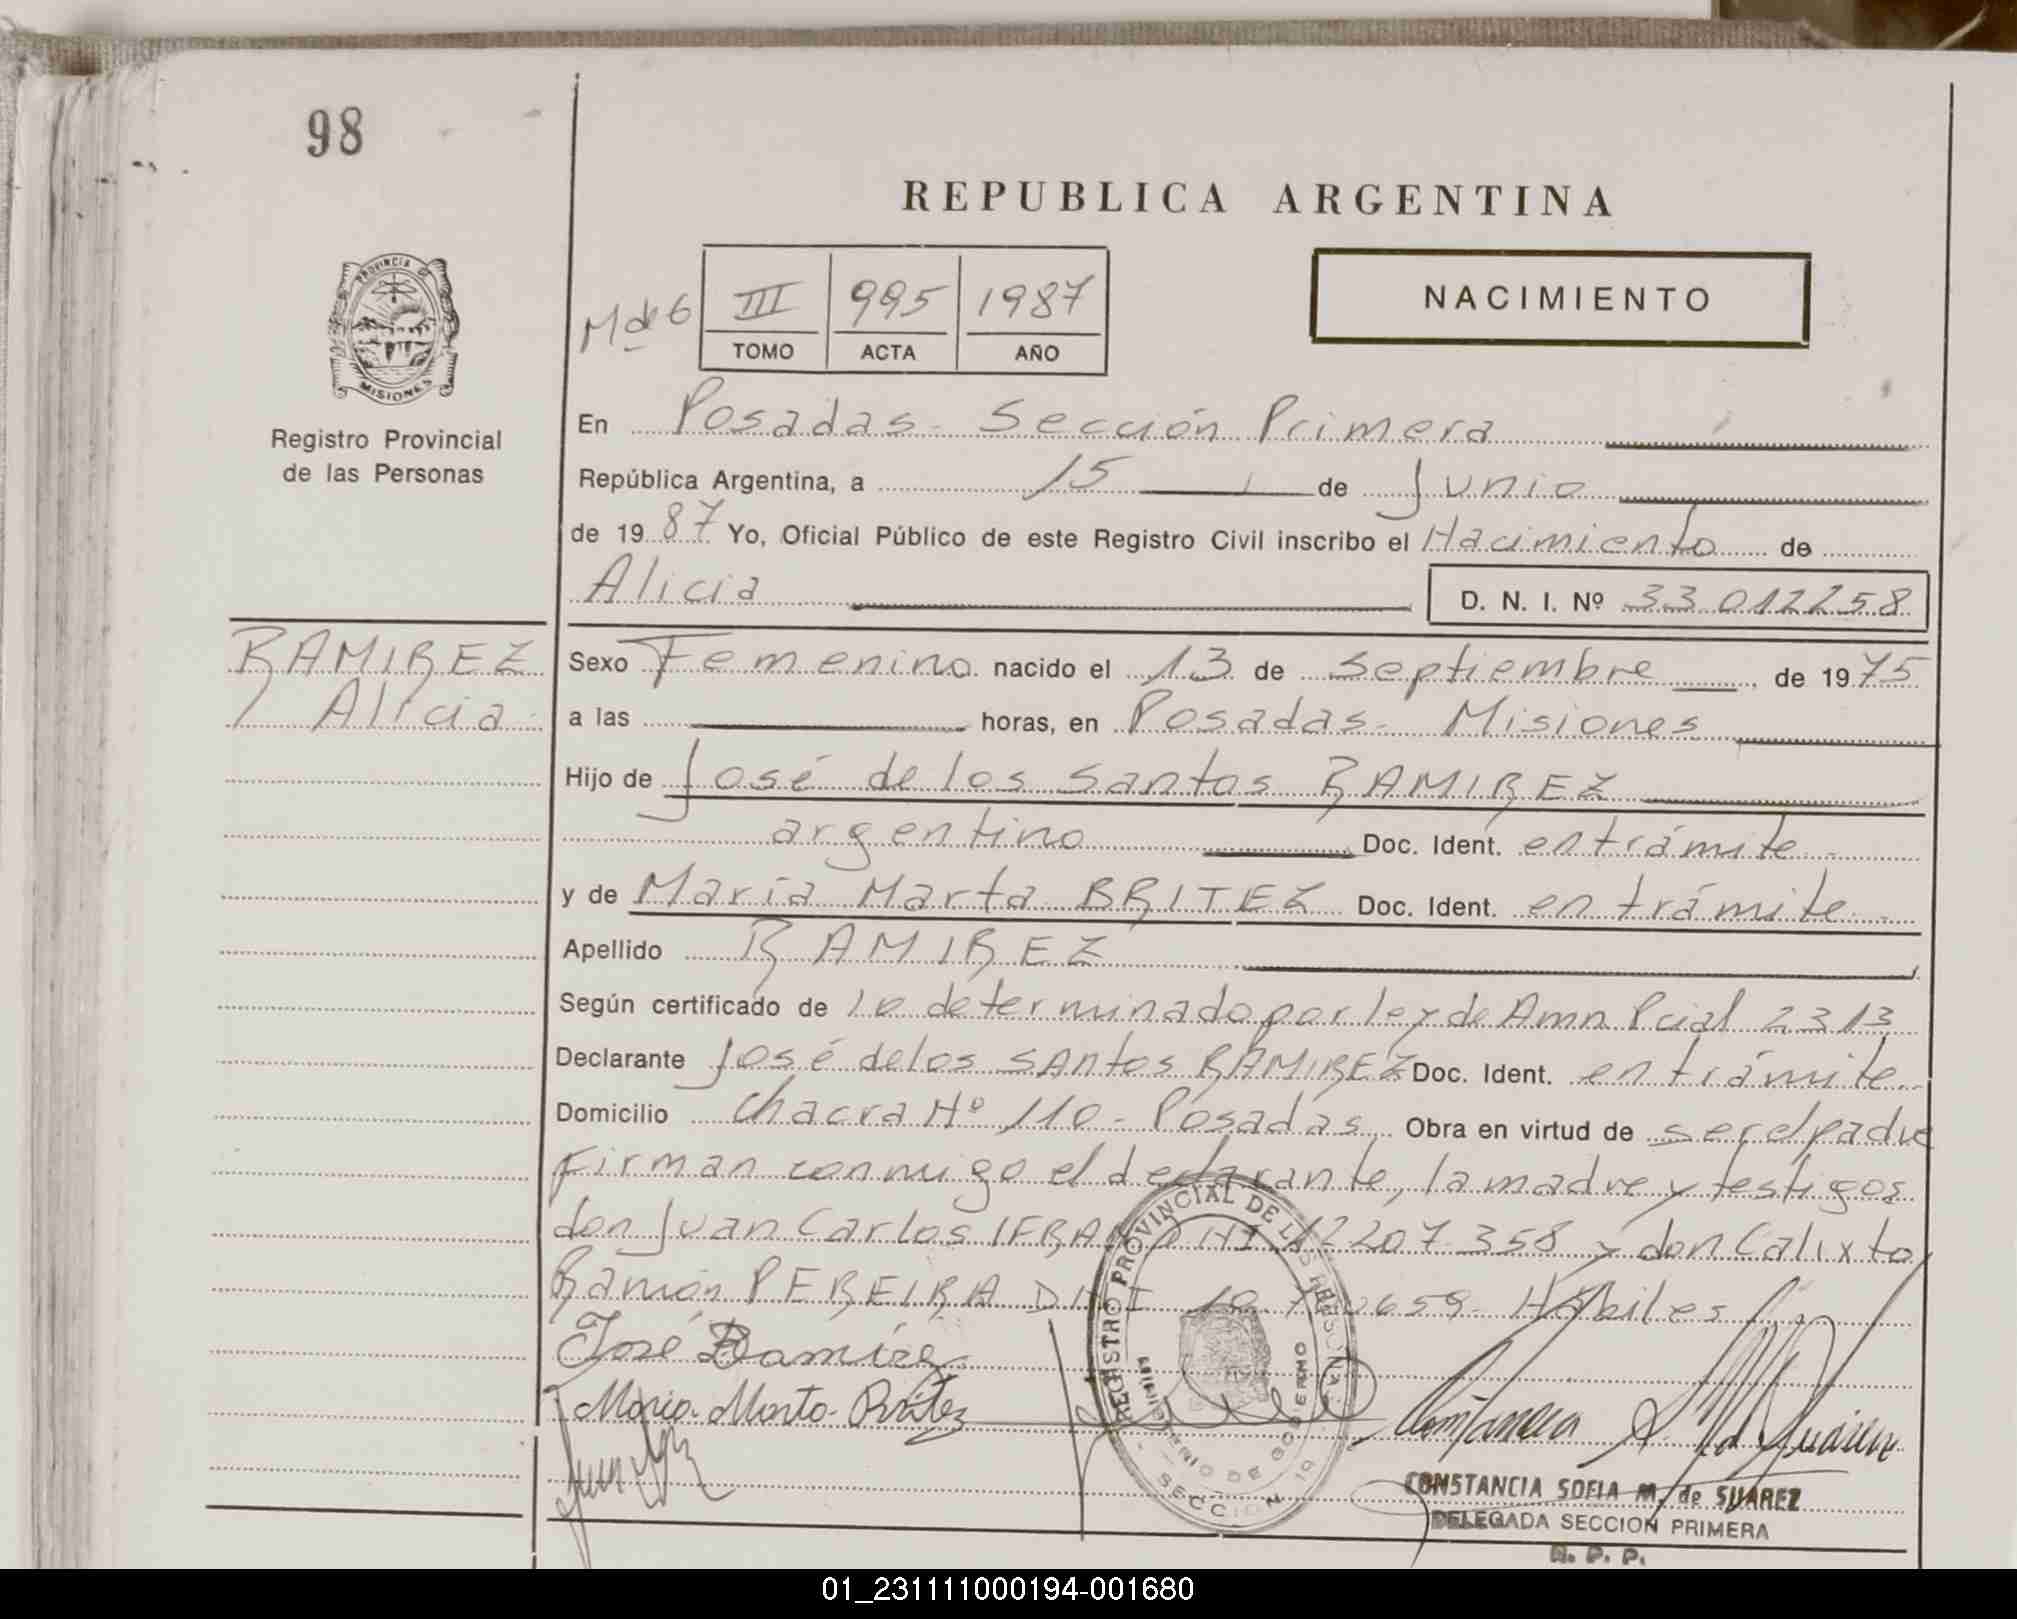 98
REPUBLICA ARGENTINA
PROVINCIA DE
MISIONES
Registro Provincial
de las Personas
III 995 1987
TOMO ACTA AÑO
NACIMIENTO
En Posadas - Sección Primera
República Argentina, a 15 de Junio
de 1987 Yo, Oficial Público de este Registro Civil inscribo el Nacimiento de
Alicia D. N. I. Nº 33.012258
RAMIREZ
Alicia
Sexo Femenino nacido el 13 de septiembre de 1975
a las horas, en Posadas - Misiones
Hijo de José de los Santos RAMIREZ
argentino Doc. Ident. en trámite -
y de María Marta BRITEZ Doc. Ident. en trámite -
Apellido RAMIREZ
Según certificado de lo determinado por ley de Amn Pcial 2313
Declarante José de los SAntos RAMIREZ Doc. Ident. en trámite
Domicilio Chacra Nº 110 - Posadas Obra en virtud de ser el padre
Firman conmigo el declarante, la madre y testigos
don Juan Carlos IFRAN DNI 12207.358 y don Calixto
Ramón PEREIRA DNI Hábiles
José Ramírez
Maria Marta Britez
REGISTRO PROVINCIAL DE LAS PERSONAS
MINISTERIO DE GOBIERNO
SECCION 1º
CONSTANCIA SOFIA M. de SUAREZ
DELEGADA SECCION PRIMERA
R. P. P.
01_231111000194-001680